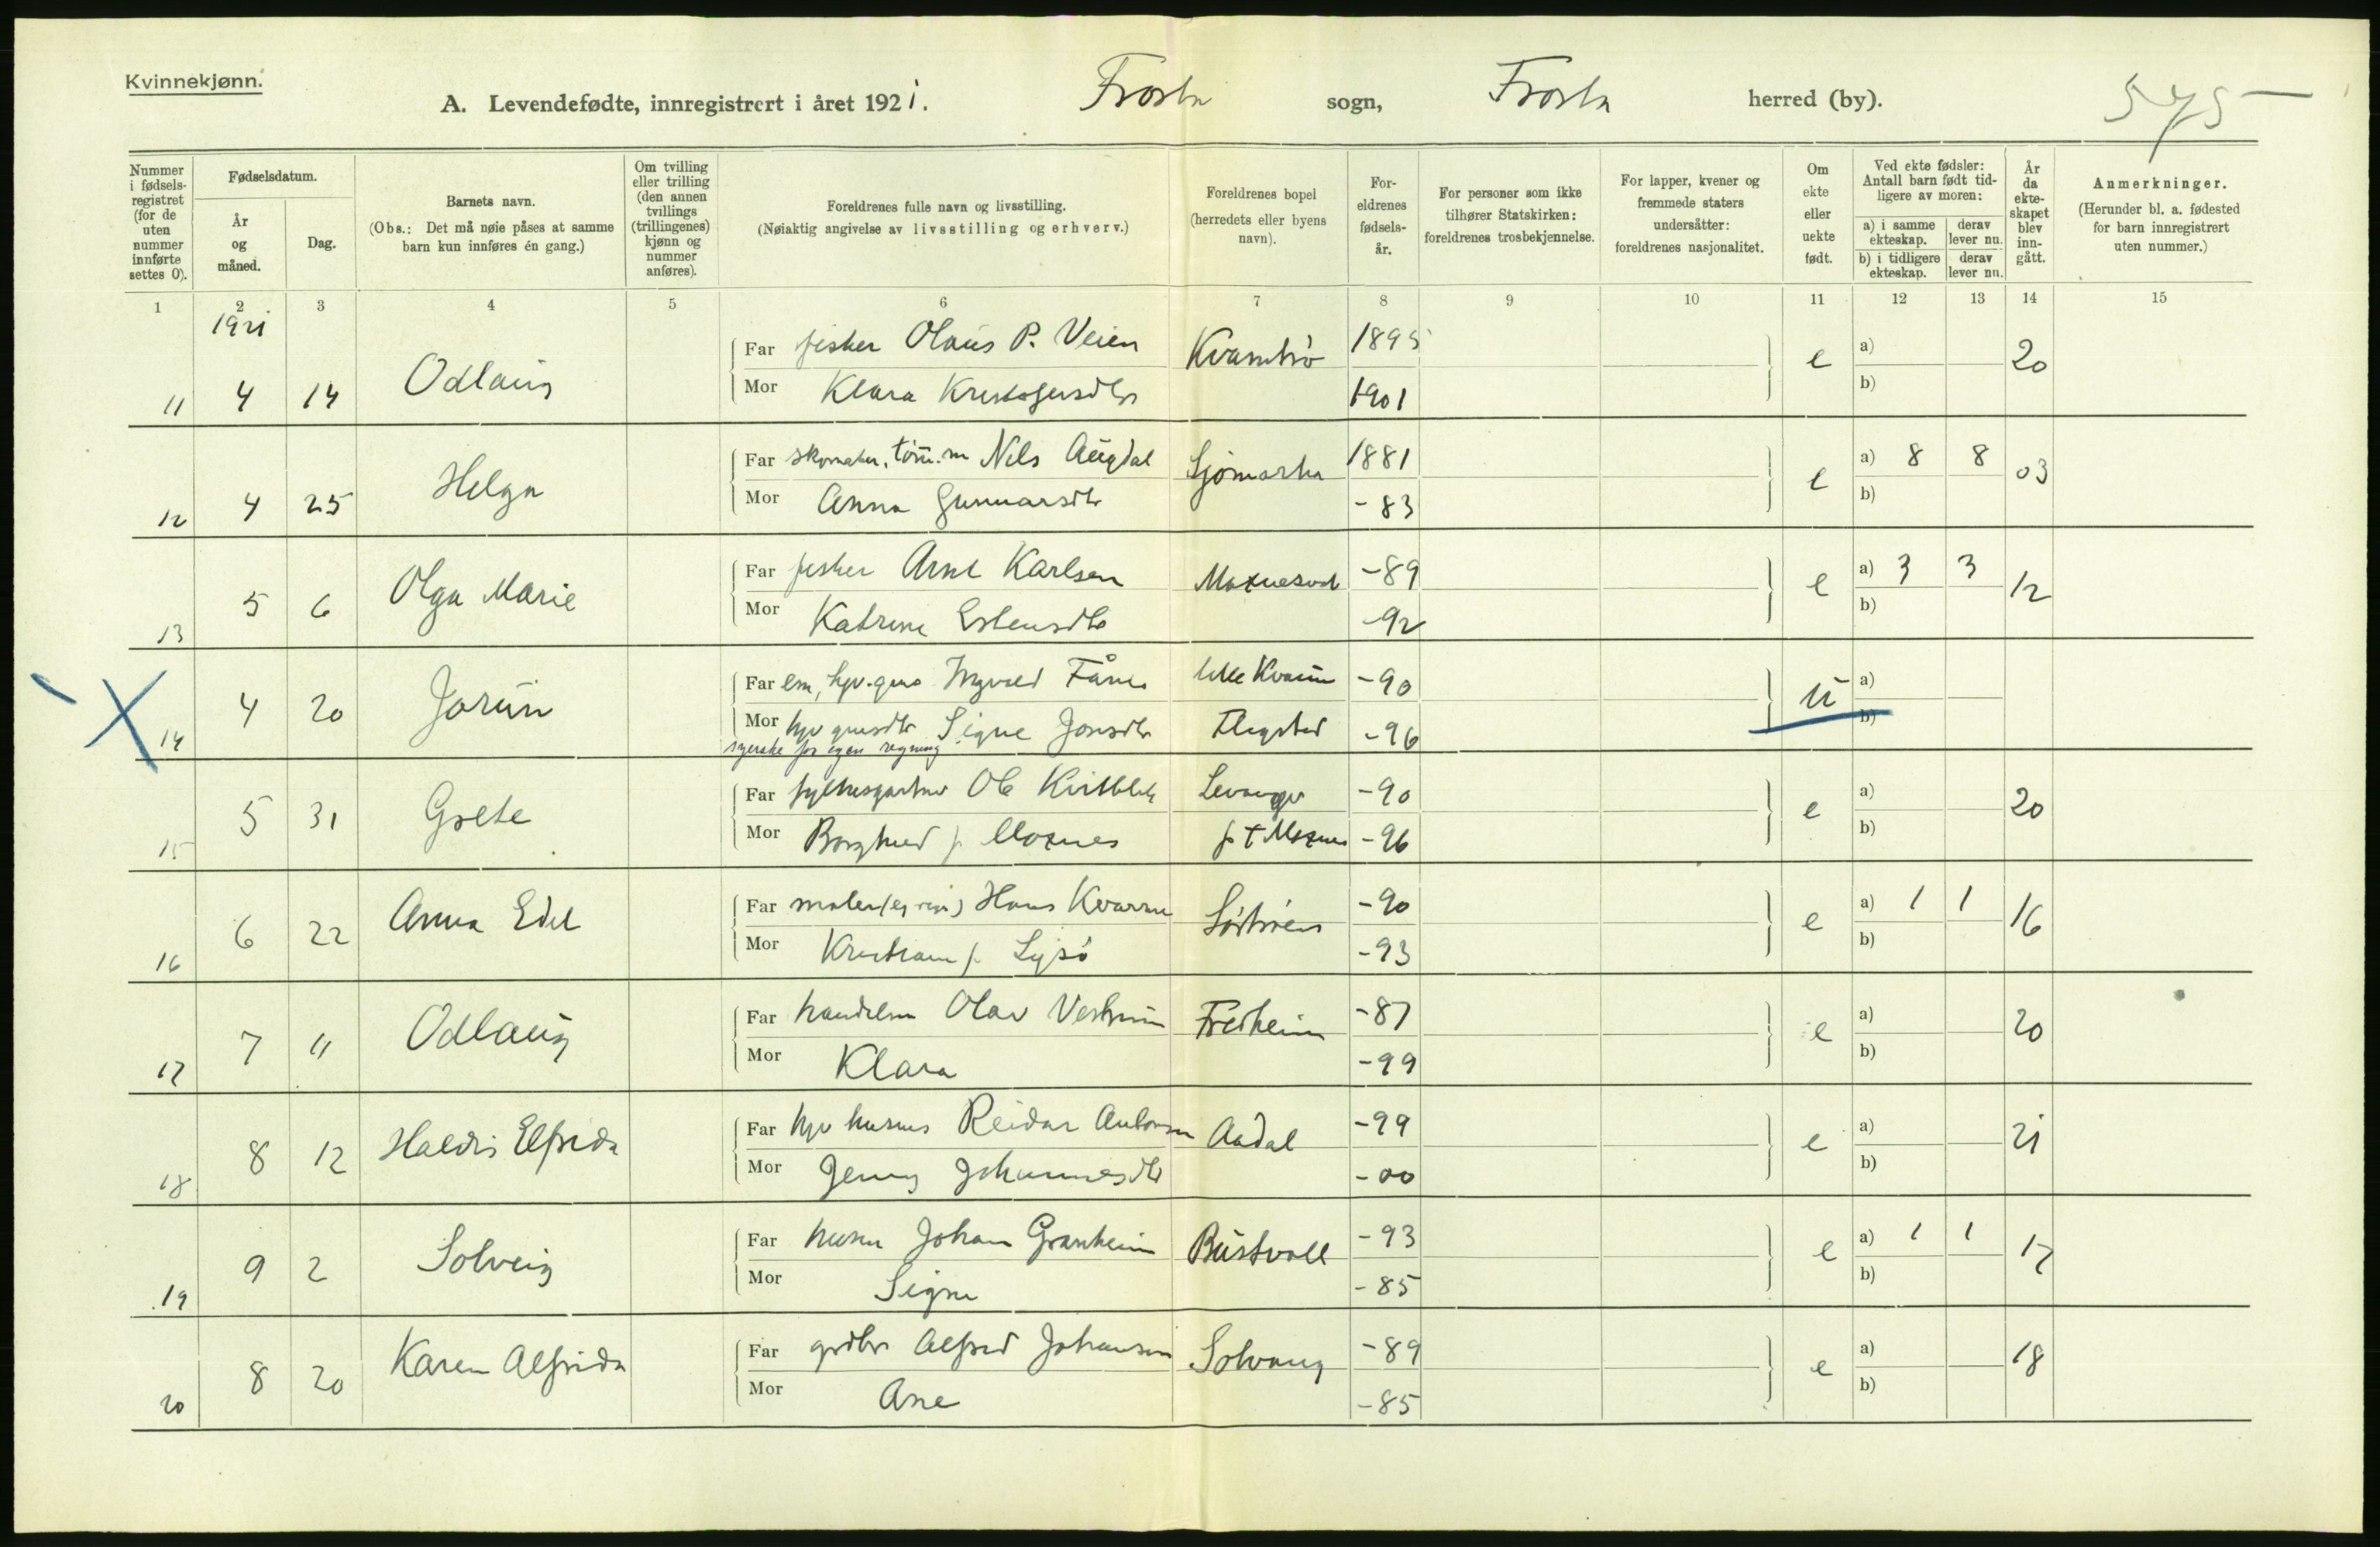 Kvinnekjønn.
A. Levendefødte, innregistrert i året 1921. Frosta sogn, Frosta herred (by). 575
Nummer i fødsels-registret (for de uten nummer innførte settes 0).
Fødselsdatum.
År og måned.
Dag.
Barnets navn.
(Obs.: Det må nøie påses at samme barn kun innføres én gang.)
Om tvilling eller trilling (den annen tvillings (trillingenes) kjønn og nummer anføres).
Foreldrenes fulle navn og livsstilling.
(Nøiaktig angivelse av livsstilling og erhverv.)
Foreldrenes bopel (herredets eller byens navn).
For-eldrenes fødsels-år.
For personer som ikke tilhører Statskirken: foreldrenes trosbekjennelse.
For lapper, kvener og fremmede staters undersåtter: foreldrenes nasjonalitet.
Om ekte eller uekte født.
Ved ekte fødsler: Antall barn født tid-ligere av moren:
a) i samme ekteskap.
derav lever nu.
b) i tidligere ekteskap.
derav lever nu.
År da ekte-skapet blev inn-gått.
Anmerkninger.
(Herunder bl. a. fødested for barn innregistrert uten nummer.)
1 2 3 4 5 6 7 8 9 10 11 12 13 14 15
1921
Far fisker Olaus P. Veien Kvamtrø 1895
11 4 14 Odlaug e a) b) 20
Mor Klara Kristofersdtr 1901
Far skomaker, töm.m Nils Augdal 1881
12 4 25 Helga e a) 8 8 b) 03
Mor Anna Gunnarsdtr -83
Far fisker Arnt Karlsen -89
13 5 6 Olga Marie e a) 3 3 b) 12
Mor Katrine Estensdtr -92
Far em, Ingvald Fånes lille Kvam -90
14 4 20 Jorun u a) b)
Mor Signe Jonsdtr -96
syerske for egen regning
Far Ole Levanger -90
15 5 31 Grete e a) b) 20
Mor Borghild f. Moxnes p t Moxnes -96
Far maler Hans Kvarme -90
16 6 22 Anna Edel e a) 1 1 b) 16
Mor f. Lysö -93
Far handelsm Olav Vestrum Fredheim -87
17 7 11 Odlaug e a) b) 20
Mor Klara -99
Far Reidar Antonsen Aadal -99
18 8 12 Haldis Elfrida e a) b) 21
Mor Jenny Johannesdtr -00
Far husm Johan Granheim Bustvoll -93
19 9 2 Solveig e a) 1 1 b) 17
Mor Signe -85
Far grdbr Alfred Johansen Solvang -89
20 8 20 Karen Alfrida e a) b) 18
Mor Ane -85